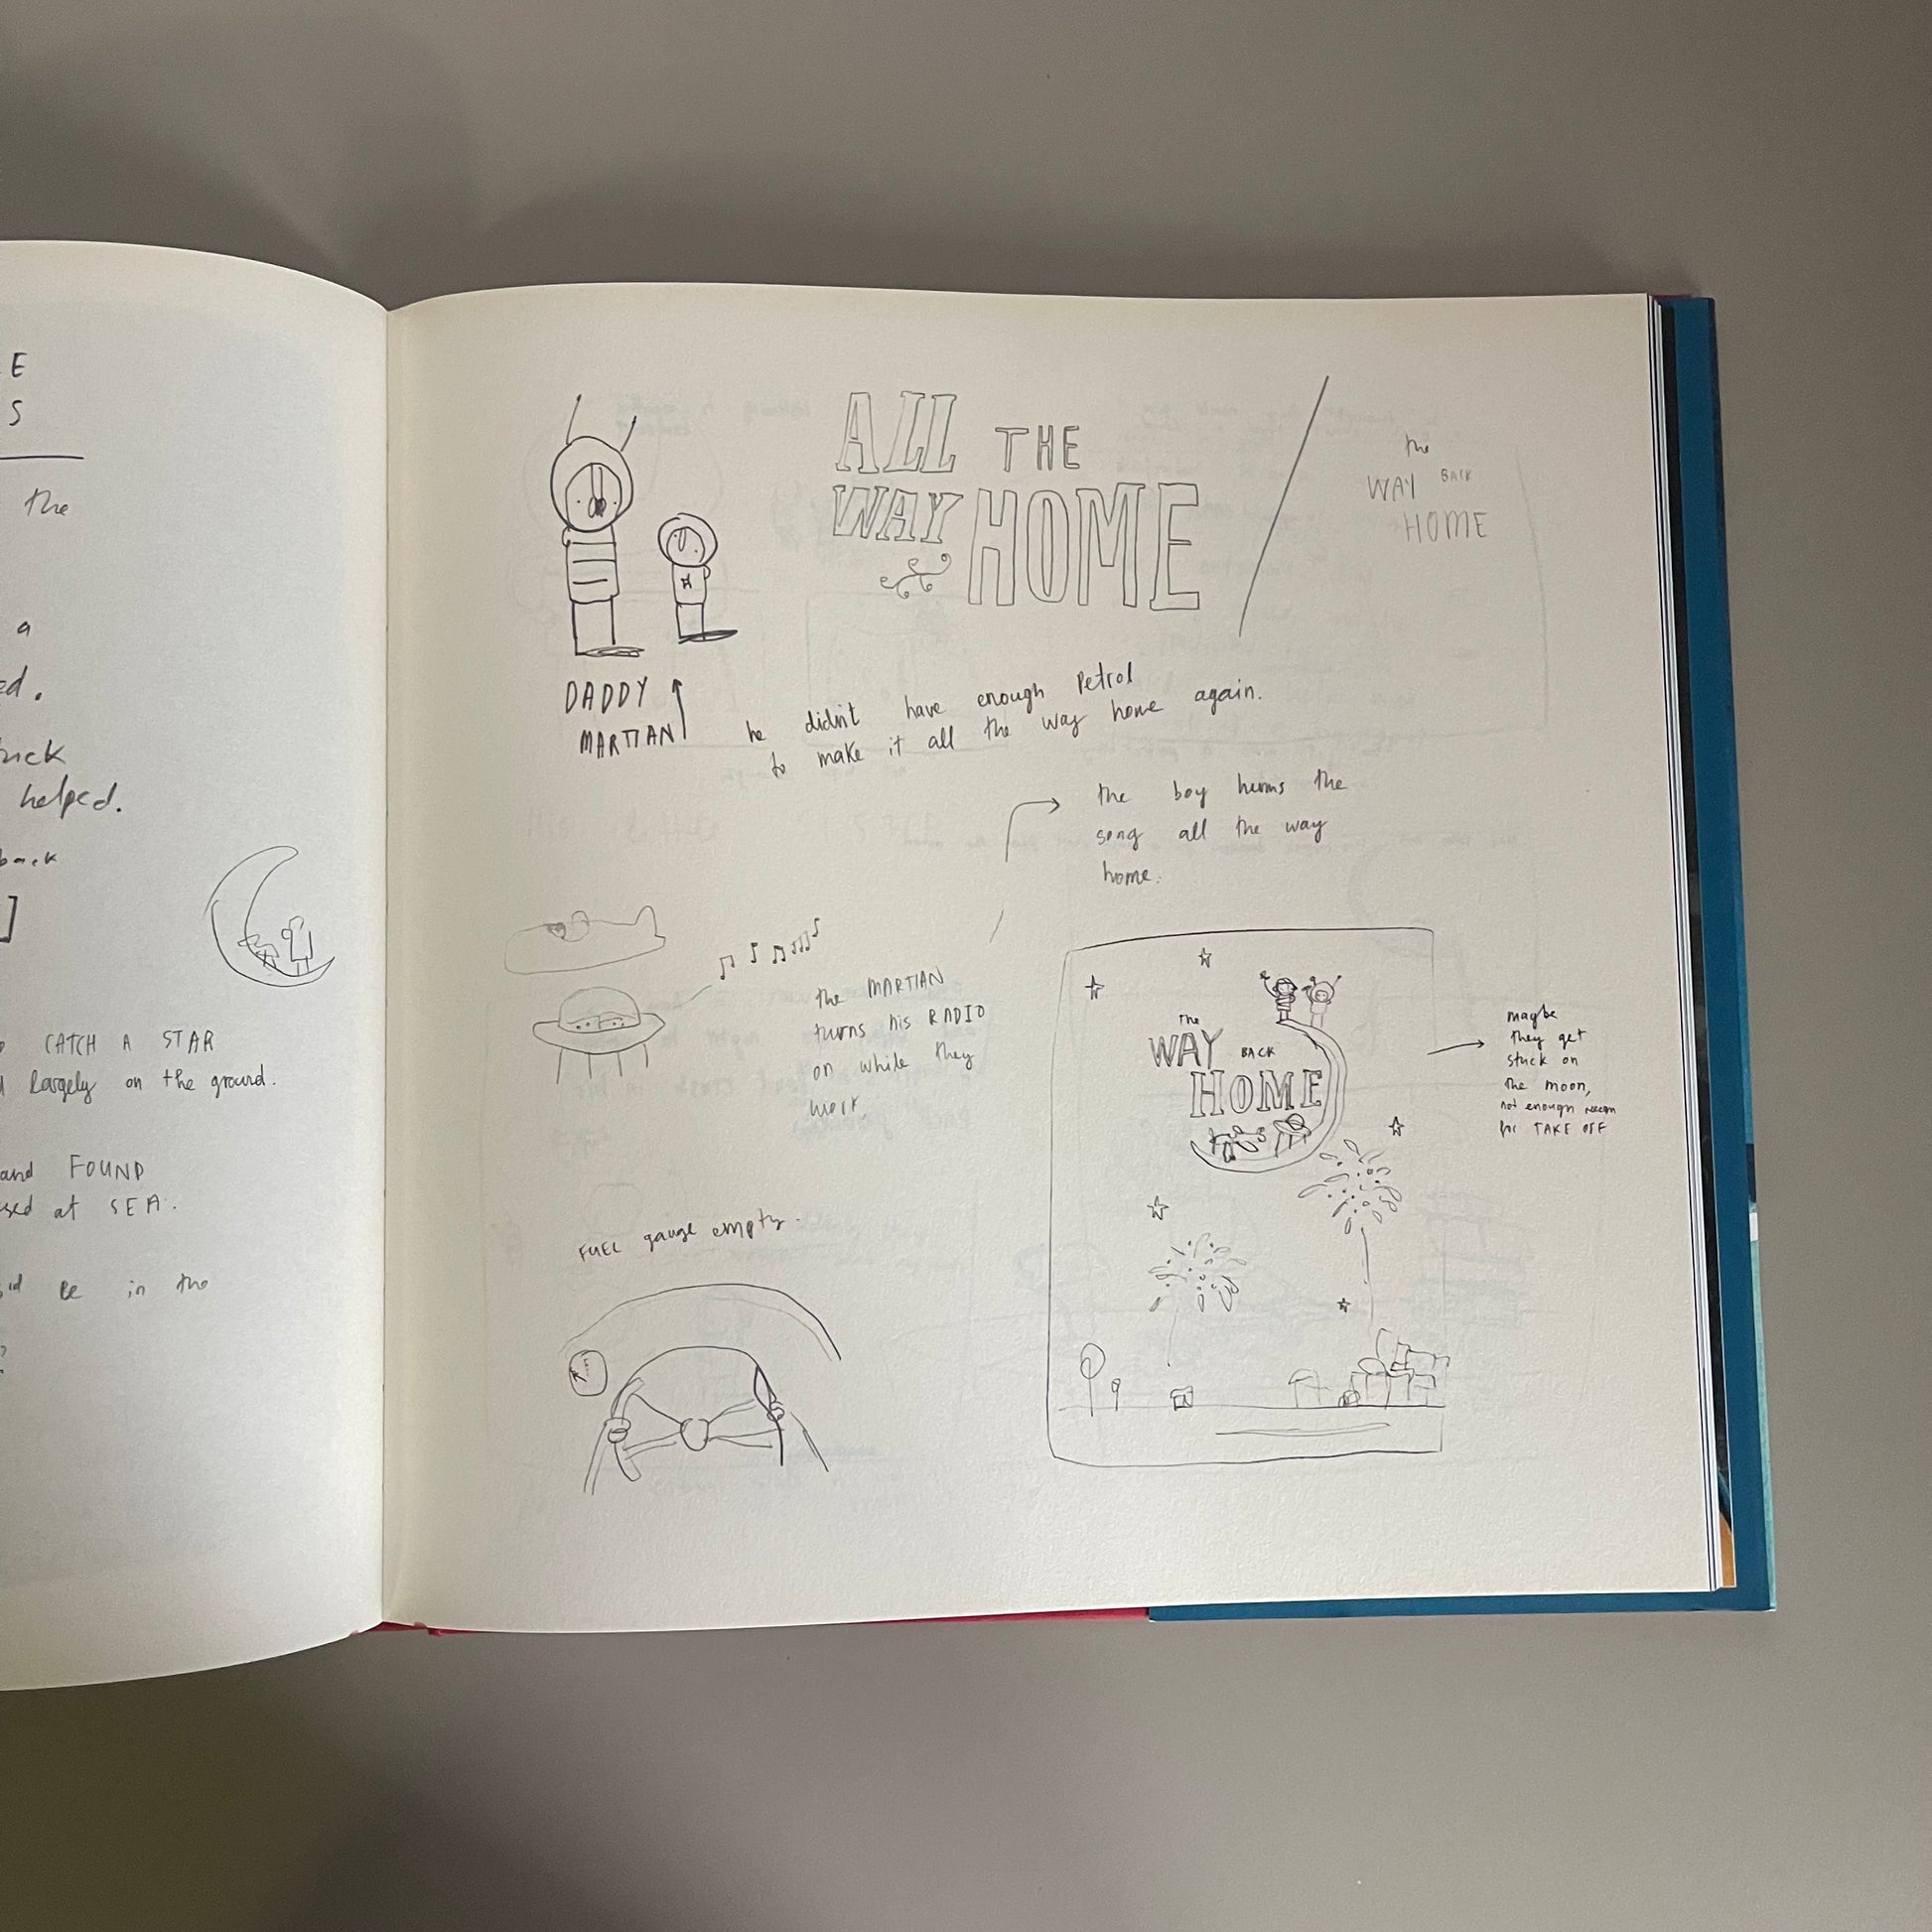 E
S
the
a
ed.
uck
helped.
back
]
CATCH A STAR
largely on the ground.
and FOUND
sed at SEA.
be in the
?
ALL THE
WAY HOME
the
WAY BACK
HOME
DADDY
MARTIAN
he didn't have enough Petrol
to make it all the way home again.
the boy hums the
song all the way
home.
the MARTIAN
turns his RADIO
on while they
work.
FUEL gauge empty.
The
WAY BACK
HOME
maybe
they get
stuck on
the moon,
not enough
for TAKE OFF
H